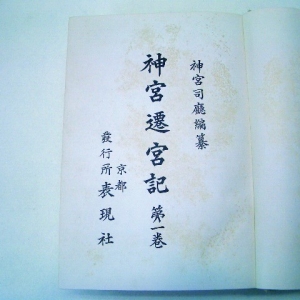 神宮司廳編纂
神宮遷宮記 第一巻
京都
發行所 表現社